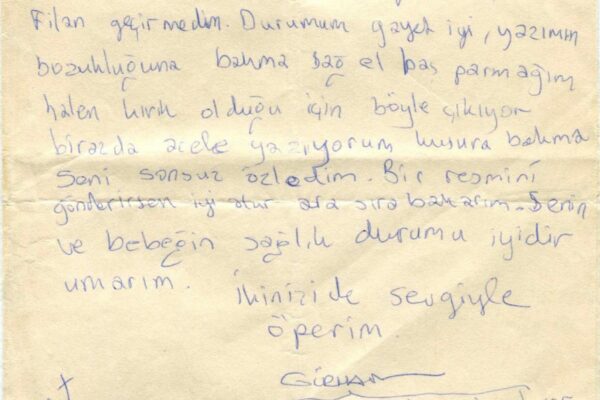 Filan geçirmedim. Durumum gayet iyi, yazımın
bozukluğuna bakma sağ el baş parmağım
halen kırık olduğu için böyle çıkıyor
birazda acele yazıyorum kusura bakma
Seni sonsuz özledim. Bir resmini
gönderirsen iyi olur ara sıra bakarım. Senin
ve bebeğin sağlık durumu iyidir
umarım. İkinizide sevgiyle
öperim.